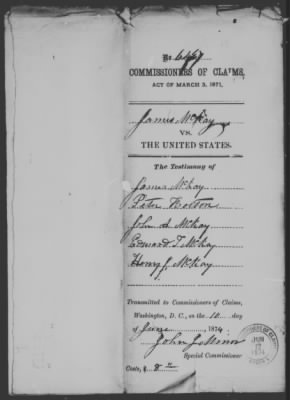 No. 6467
COMMISSIONERS OF CLAIMS,
ACT OF MARCH 3, 1871,
James McKay
VS.
THE UNITED STATES.
The Testimony of
James McKay
Peter Bolton
John A McKay
Edward T McKay
Henry J. McKay
Transmitted to Commissioners of Claims,
Washington, D. C., on the 10 day
of June 1874
John J. Minor
Special Commissioner
Costs, $ 8